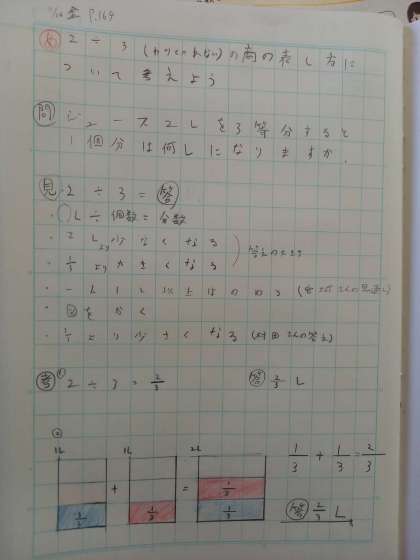 金 P.169
め 2÷3(わりきれない)の商の表し方に
ついて考えよう
問 ジュース2Lを3等分すると
1個分は何Lになりますか。
見 ・2÷3=答
・( )L÷個数=分数
・2Lより少なくなる
・1/3より大きくなる 答えの大きさ
・1L
・図をかく
・1/2より大きくなる (対田さんの答え)
考 ① 2÷3=2/3 答 2/3 L
②
1L 1L 2L
1/3 + 1/3 = 1/3 1/3
1/3 + 1/3 = 2/3
答 2/3 L